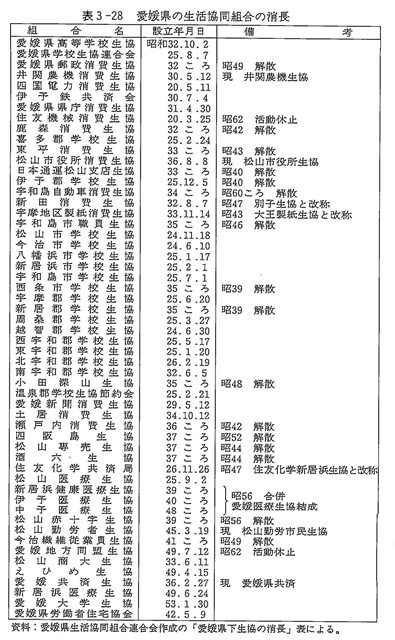 表3-28 愛媛県の生活協同組合の消長
組合名 設立年月日 備考
愛媛県高等学校生協 昭和32.10.2
愛媛県学校生協連合会 25.8.7
愛媛県郵政消費生協 32ころ 昭49 解散
井関農機消費生協 30.5.12 現 井関農機生協
四国電力消費生協 20.5.11
伊予鉄共済会 30.7.4
愛媛県県庁消費生協 31.4.30
住友機械消費生協 20.3.25 昭62 活動休止
鹿森消費生協 32ころ 昭42 解散
喜多郡学校生協 25.2.24
東平消費生協 33ころ 昭43 解散
松山市役所消費生協 36.8.8 現 松山市役所生協
日本通運松山支店生協 33ころ 昭40 解散
伊予郡学校生協 25.12.5 昭40 解散
宇和島自動車消費生協 34ころ 昭60ころ 解散
新田消費生協 32.8.7 昭47 別子生協と改称
宇摩地区製紙消費生協 33.11.14 昭43 大王製紙生協と改称
宇和島市職員生協 35ころ 昭46 解散
松山市学校生協 24.11.18
今治市学校生協 24.6.10
八幡浜市学校生協 25.1.17
新居浜市学校生協 25.2.1
宇和島市学校生協 25.7.1
西条市学校生協 35ころ 昭39 解散
宇摩郡学校生協 25.6.20
新居郡学校生協 35ころ 昭39 解散
周桑郡学校生協 25.3.27
越智郡学校生協 24.6.30
西宇和郡学校生協 25.5.17
東宇和郡学校生協 25.1.20
北宇和郡学校生協 26.2.19
南宇和郡学校生協 32.6.5
小田深山生協 35ころ 昭48 解散
温泉郡学校生協節約会 25.2.21
愛媛新聞消費生協 29.5.12
土居消費生協 34.10.12
瀬戸内消費生協 36ころ 昭42 解散
四阪島生協 37ころ 昭52 解散
松山専売生協 37ころ 昭44 解散
酒六生協 37ころ 昭44 解散
住友化学共済局 26.11.26 昭47 住友化学新居浜生協と改称
松山医療生協 25.9.2
新居浜健康医療生協 39ころ
伊予医療生協 40ころ 昭56 合併
中予医療生協 48ころ 愛媛医療生協結成
松山赤十字生協 39ころ 昭56 解散
松山勤労者生協 45.3.19 現 松山勤労市民生協
今治繊維従業員生協 41ころ 昭49 解散
愛媛地方同盟生協 49.7.12 昭62 活動休止
松山商大生協 33.6.11
えひめ生協 49.4.15
愛媛共済生協 36.2.27 現 愛媛県共済
新居浜医療生協 49.6.24
愛媛大学生協 53.1.30
愛媛県労働者住宅協会 42.5.9
資料：愛媛県生活協同組合連合会作成の「愛媛県下生協の消長」表による。